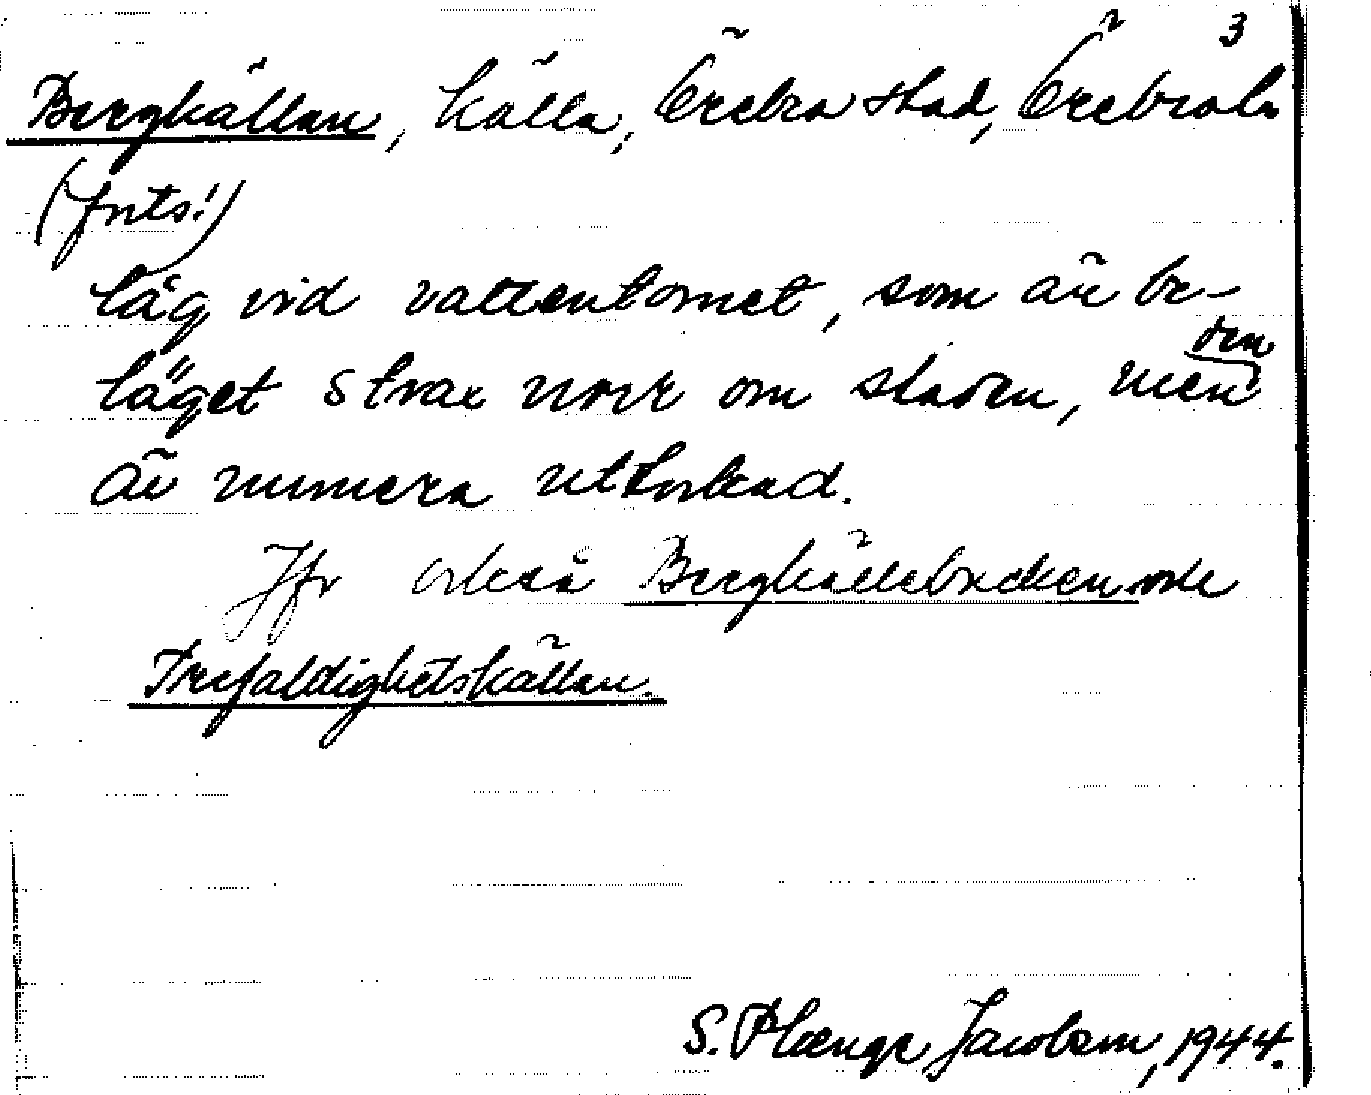 3
Bergkällan, källa, Örebro stad, Örebro ln
(forts.)
låg vid vattentornet, som är be-
läget strax norr om staden, men den
är numera uttorkad.
Jfr också Bergkällebacken och
Trefaldighetskällan.
S. Plænge Jacobson, 1944.